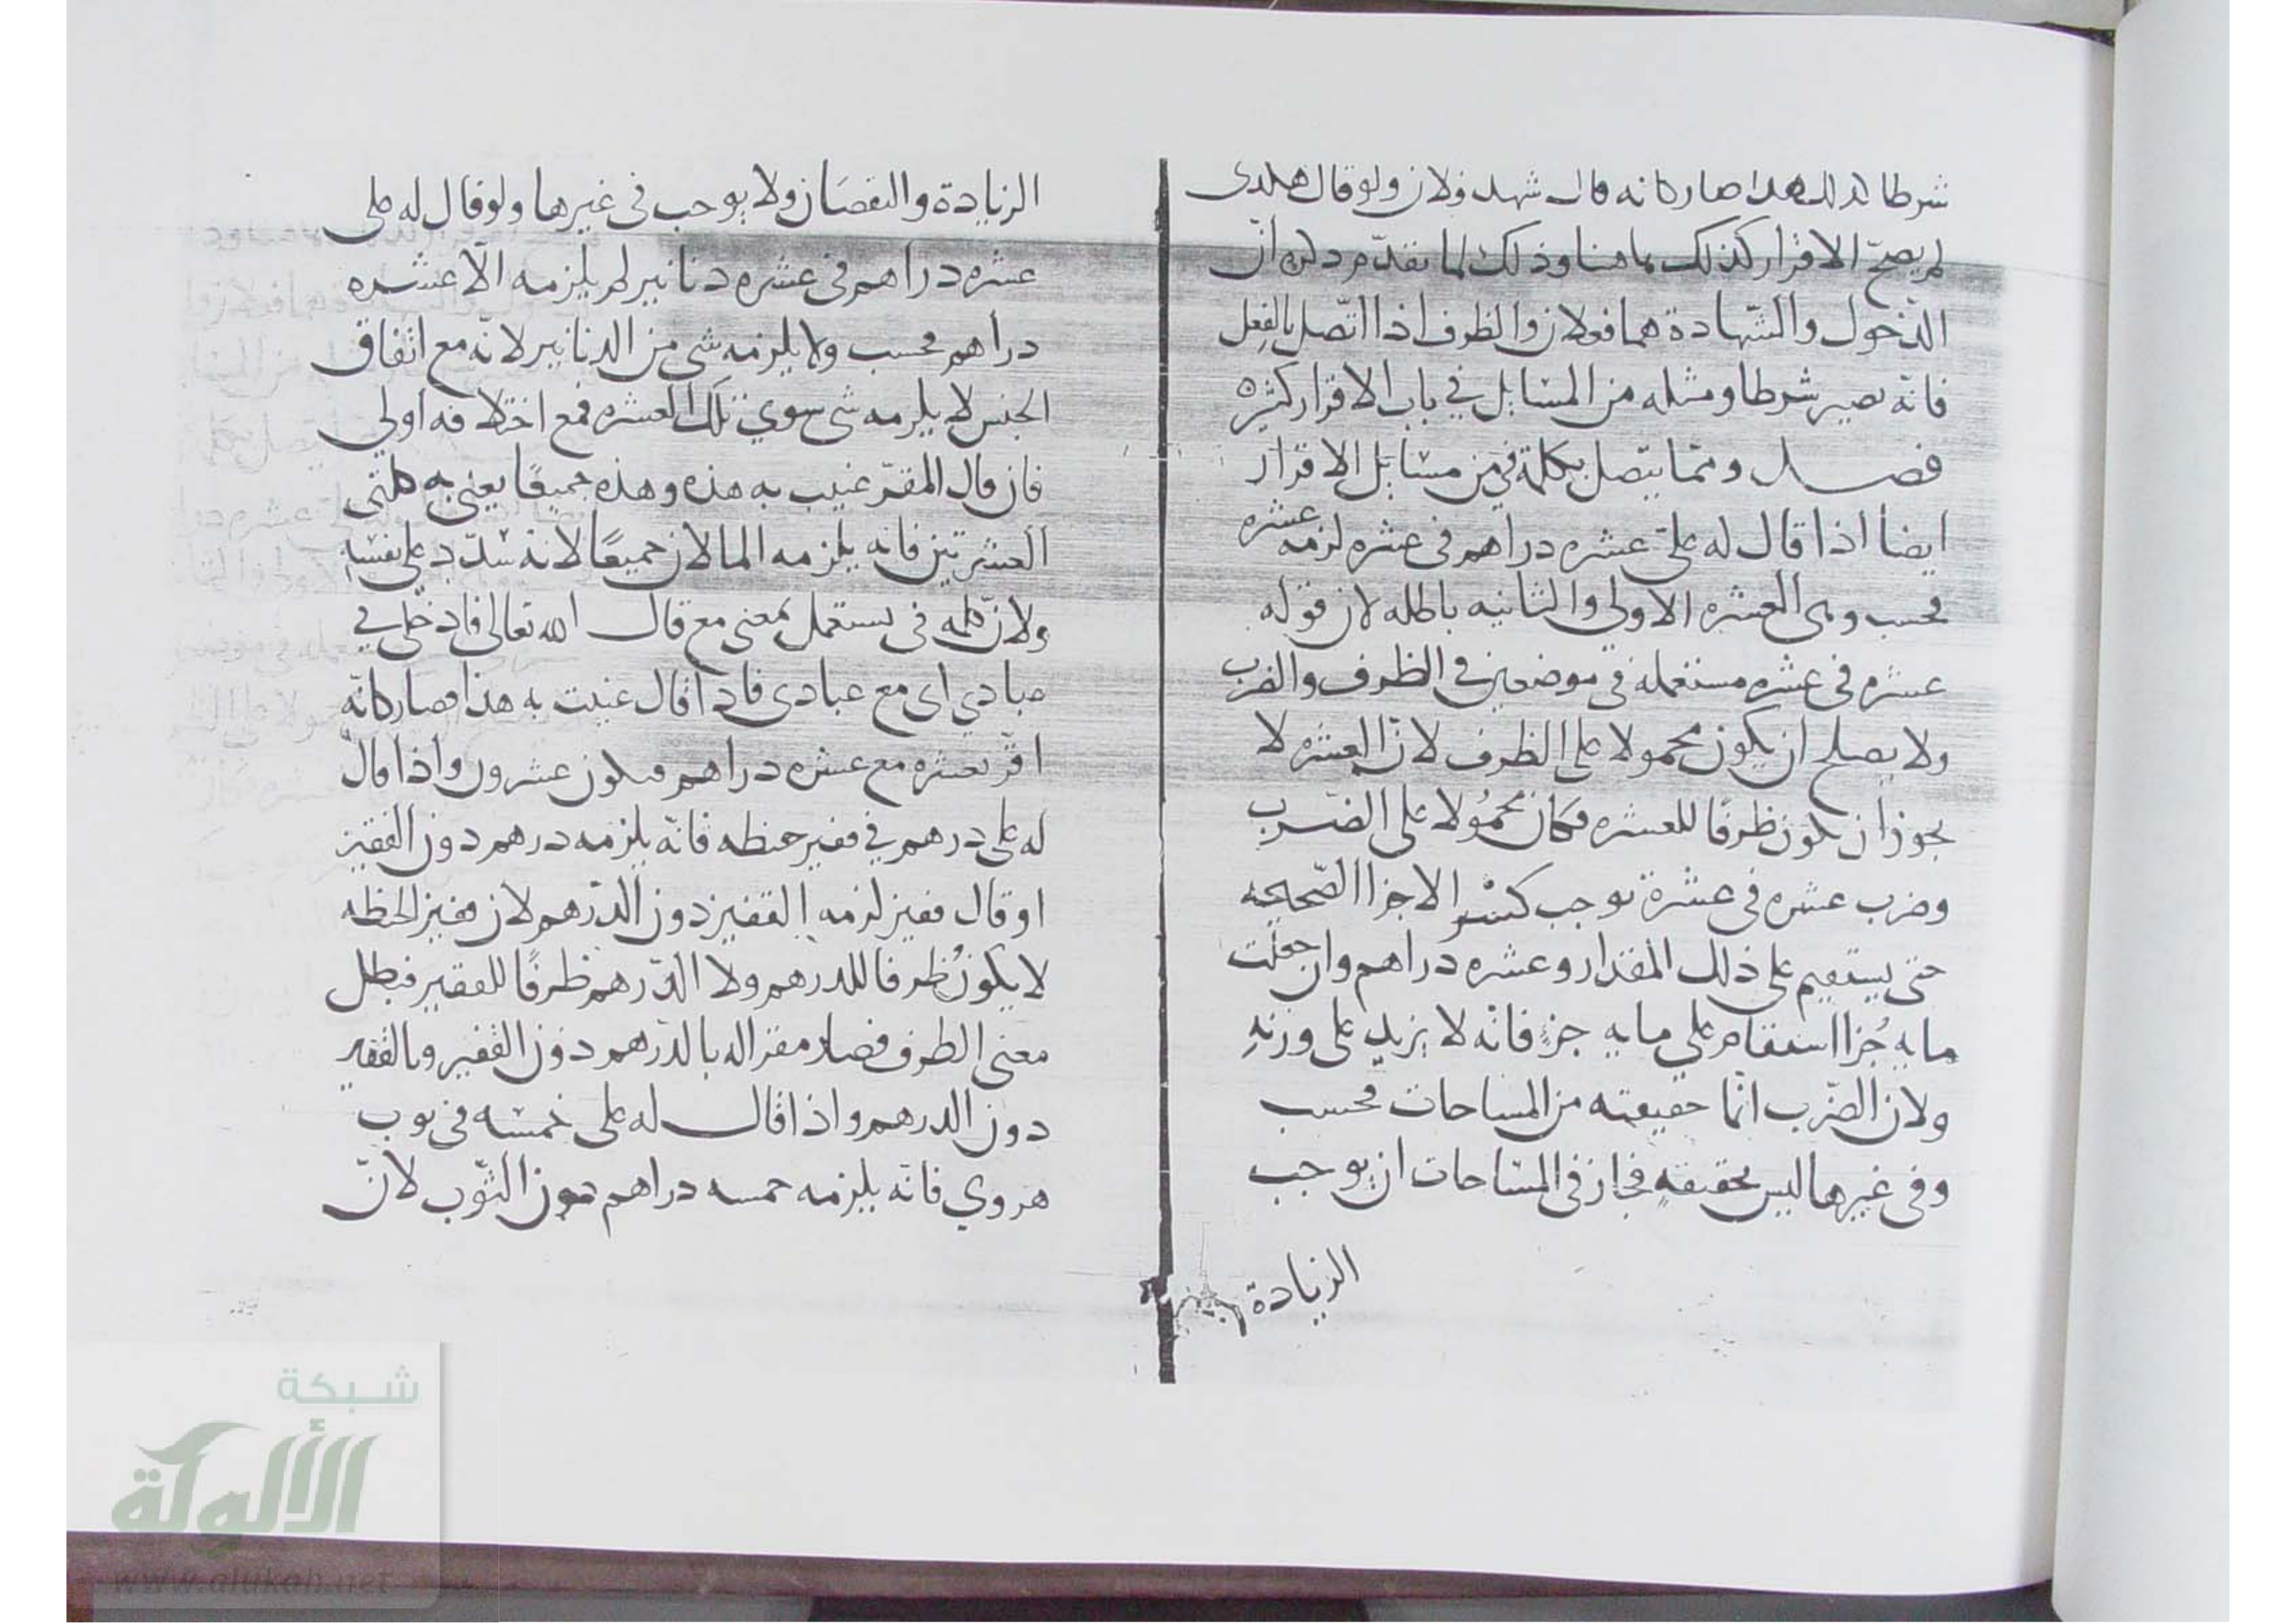 شرطا كذلك هذا صار كانه قال شهد فلان ولو قال هكذى
لم يصحّ الاقرار كذلك هاهنا وذلك لما تقدّم ذكره انّ
الدّخول والشّهادة هما فعلان والظرف اذا اتّصل بالفعل
فانّه يصير شرطا ومثله من المسايل في باب الاقرار كثيره
فصل وممّا يتصل بكلمة في من مسايل الاقرار
ايضا اذا قال له عليّ عشره دراهم في عشره لزمه عشره
فحسب وهى العشره الاولي والثانيه باطله لان قوله
عشره في عشره مستعمله في موضعين في الظرف والضرب
ولا يصلح ان يكون محمولا على الظرف لانّ العشره لا
يجوز ان يكون ظرفا للعشره فكان محمُولا على الضّرب
وضرب عشره في عشرة توجب كسر الاجزا الصّحيحه
حتى يستقيم على ذلك المقدار وعشره دراهم وان جعلت
مايه جُزا استقام على مايه جزءٍ فانّه لا يزيد على وزنهِ
ولان الضّرب انّما حقيقته من المساحات فحسب
وفي غيرها ليس بحقيقهٍ فجاز في المسّاحات ان يوجب
الزيادة
الزيادة والنقصَان ولا يوجب في غيرها ولو قال له على
عشره دراهم في عشره دنانير لم يلزمه الّا عشره
دراهم فحسب ولا يلزمه شى من الدنانير لانّه مع اتفاق
الجنس لا يلزمه شى سوي تلك العشره فمع اختلافه اولي
فان قال المقرّ عنيت به هذه وهذه جميعًا يعني به كلتى
العشرتين فانه يلزمه المالان جميعًا لانه شدّد على نفسه
ولانّ كلمه في يستعمل بمعنى مع قال الله تعالى فادخلي في
عبادي اى مع عبادى فاذا قال عنيت به هذا فصار كانّه
اقرّ بعشره مع عشره دراهم فيكون عشرون واذا قال
له على درهم في قفيز حنطه فانّه يلزمه درهم دون القفيز
او قال قفيز لزمه القفيز دون الدّرهم لان قفيز الحنطه
لا يكون ظرفا للدرهم ولا الدّرهم ظرفًا للقفيز فبطل
معنى الظرف فصار مقرا له بالدّرهم دون القفيز وبالقفيز
دون الدرهم واذا قال له على خمسه في ثوب
هروي فانّه يلزمه خمسه دراهم دون الثّوب لانّ
شبكة
الألوكة
www.alukah.net